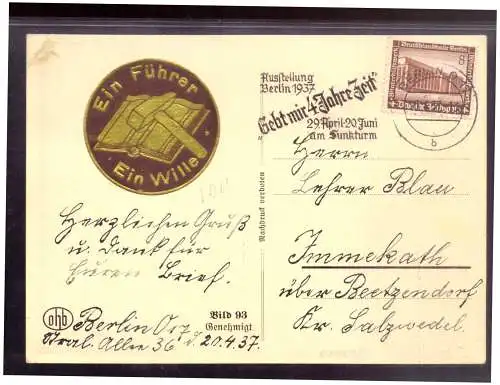 Ein Führer
Ein Wille
Ausstellung
Berlin 1937
"Gebt mir 4 Jahre Zeit"
29. April-20. Juni
am Funkturm
8
Deutschlandhalle Berlin
b
Herrn
Lehrer Blau
Immekath
über Beetzendorf
Kr. Salzwedel
Nachdruck verboten
Herzlichen Gruß
u. Dank für
Euren Brief.
ohb
Bild 93
Genehmigt
Berlin
Stral. Allee 36 d. 20.4.37.